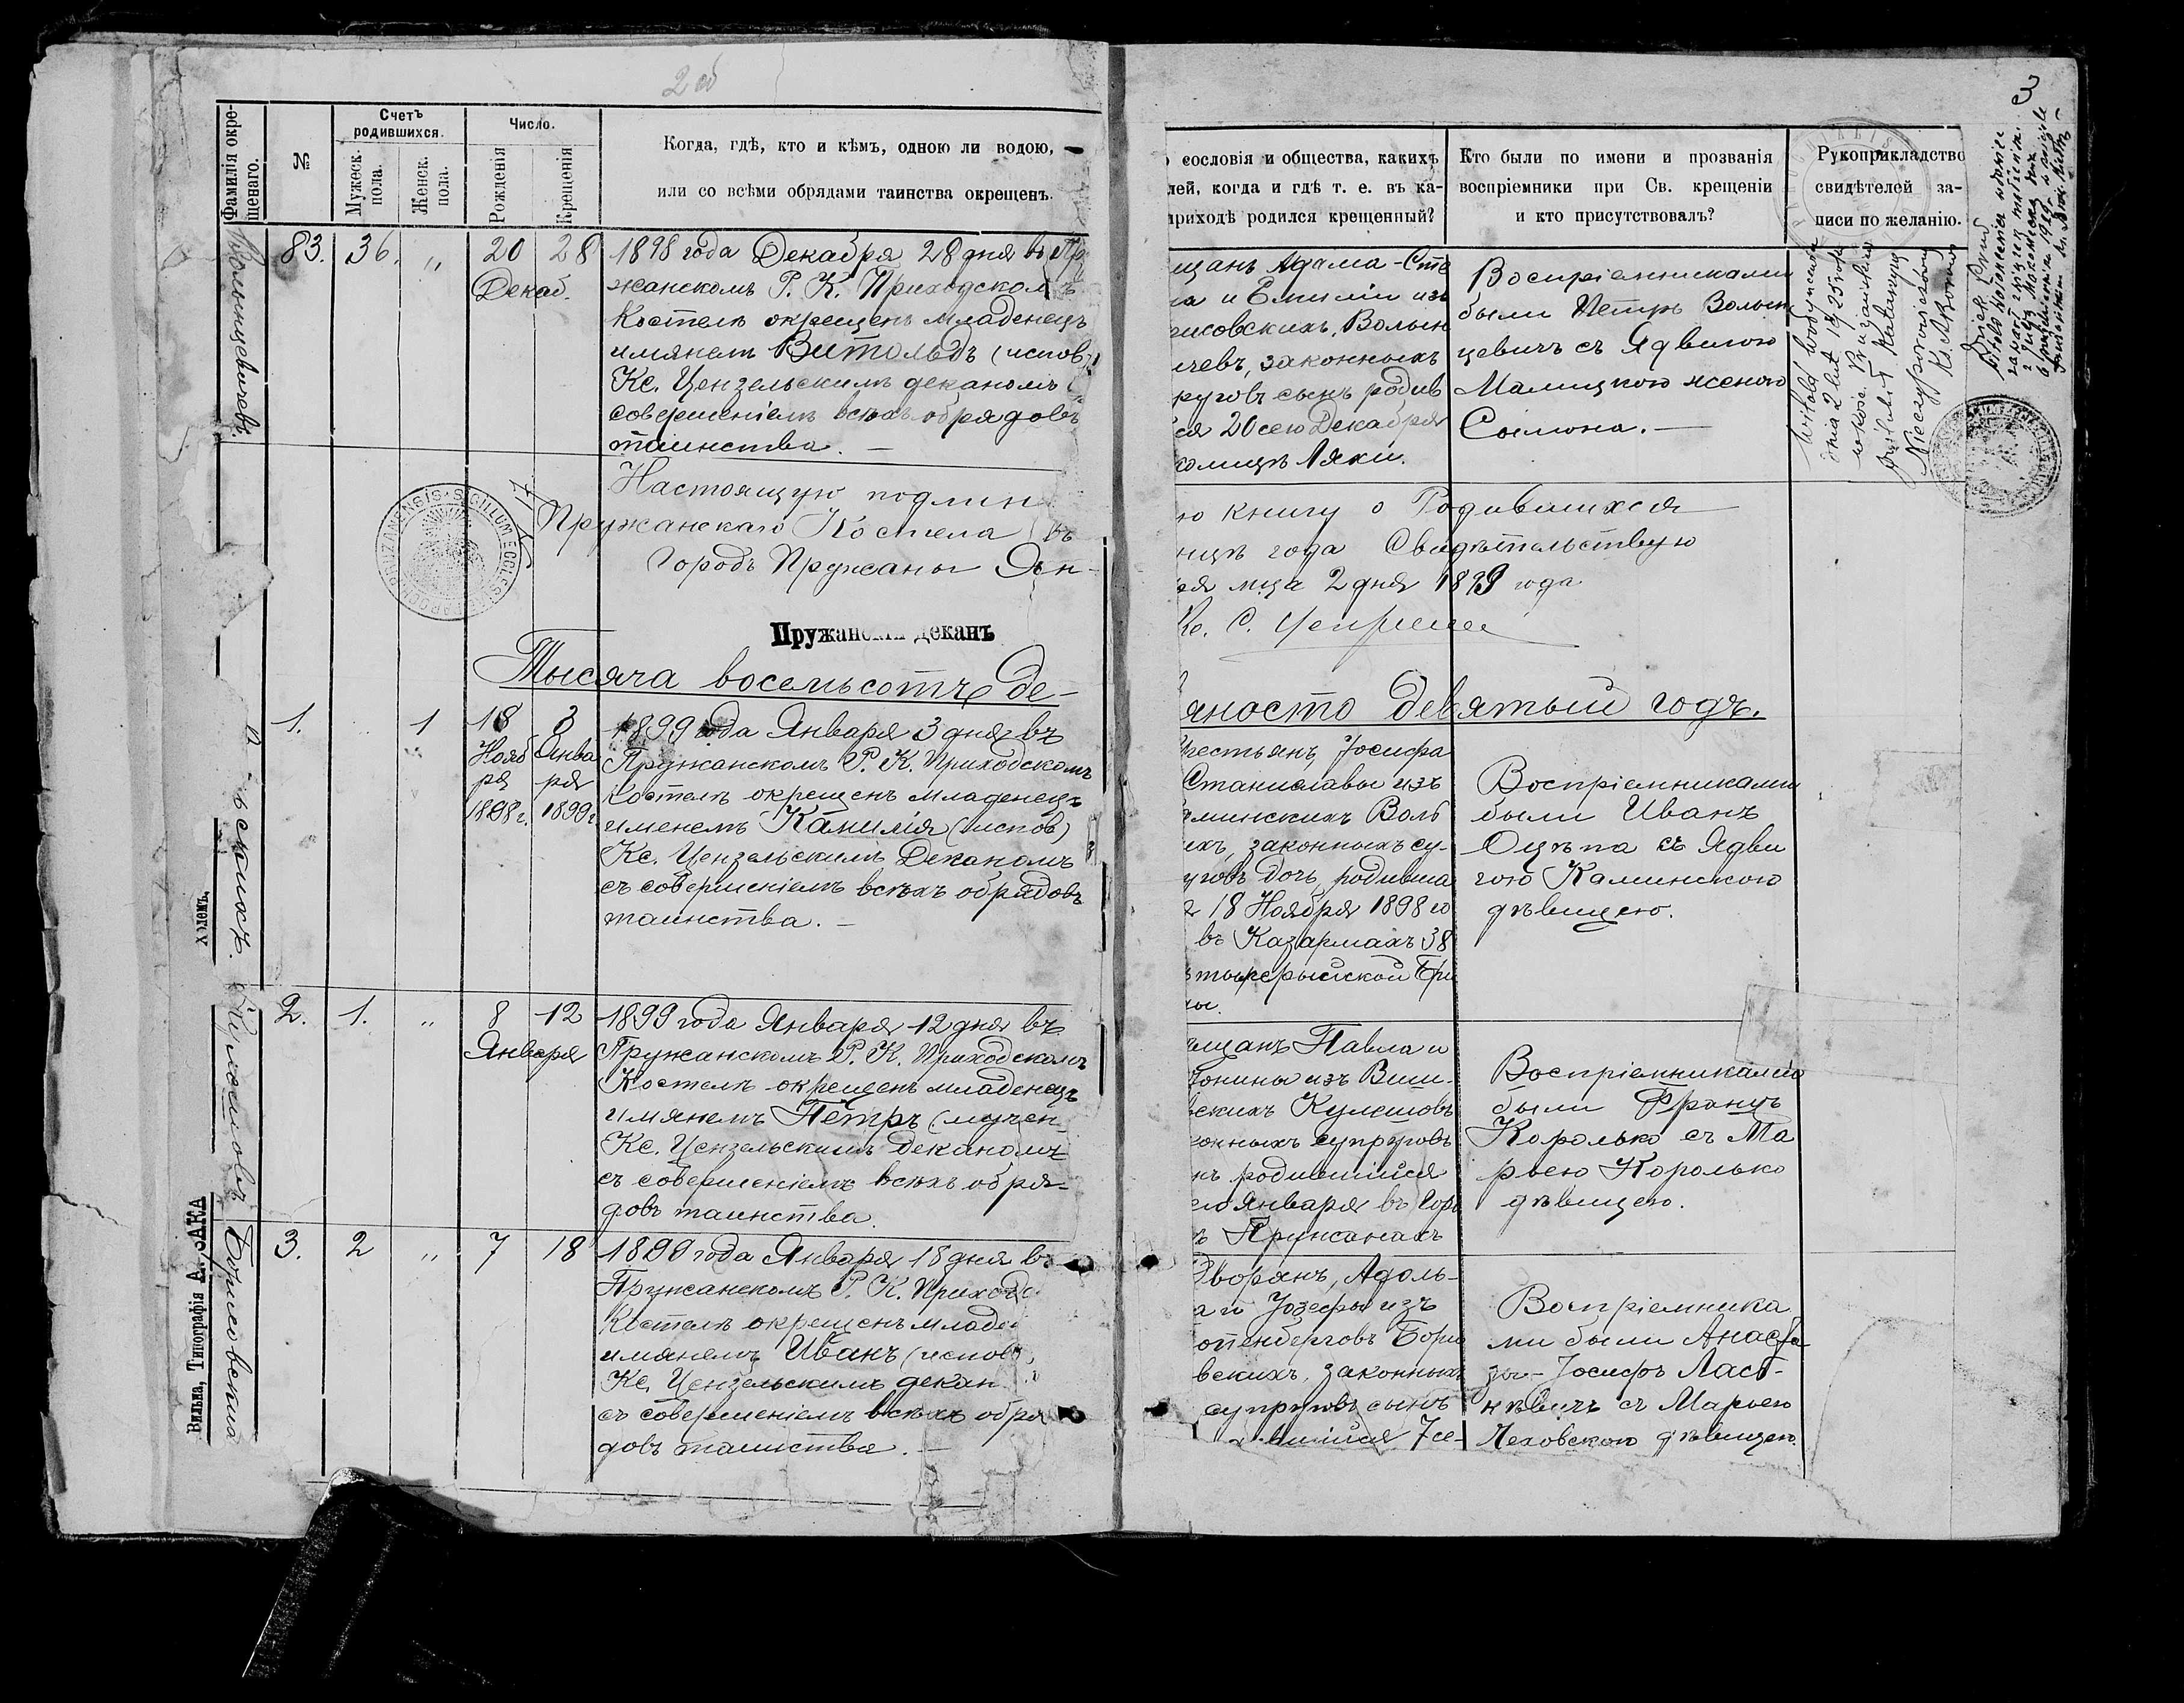 2 об
Фамилія окре-
щенаго.
№
Счетъ
родившихся.
Мужеск.
пола.
Женск.
пола.
Число.
Рожденія
Крещенія
Когда, гдѣ, кто и кѣмъ, одною ли водою,
или со всѣми обрядами таинства окрещенъ.
Волынцевичевъ.
83. 36. „ 20 28
Декаб.
1898 года Декабря 28 дня въ Пр
жанскомъ Р. К. Приходском
Костелѣ окрещенъ младенецъ
имянемъ Витольдъ (испов)
Кс. Цензельскимъ деканомъ
совершеніемъ всѣхъ обрядовъ
таинства. —
Настоящую подлин
Пружанскаго Костела
Городъ Пружаны Ян-
PRUZANENSIS · SIGILLUM ECCLESIAE PAROCH
Пружанскій деканъ
Тысяча восемьсотъ де-
1. 1 18 3
Нояб
ря
1898 г.
Янва
ря
1899 г
1899 года Января 3 дня въ
Пружанскомъ Р. К. Приходскомъ
Костелѣ окрещенъ младенецъ
именемъ Камилія (испов)
Кс. Цензельскимъ Деканомъ
съ совершеніемъ всѣхъ обрядовъ
таинства. —
Кулешовъ
2. 1. „ 8 12
Января
1899 года Января 12 дня въ
Пружанскомъ Р. К. Приходскомъ
Костелѣ окрещенъ младенецъ
имянемъ Петръ (мучен
Кс. Цензельскимъ деканомъ
съ совершеніемъ всѣхъ обря-
довъ таинства.
Борисовскій
3. 2 „ 7 18
1899 года Января 18 дня въ
Пружанскомъ Р. К. Приход
Костелѣ окрещенъ младе
имянемъ Иванъ (испов
Кс. Цензельскимъ декан
съ совершеніемъ всѣхъ обря
довъ таинства. —
Вильна, Типографія А. ЗАКА
холемъ.
3
сословія и общества, какихъ
лей, когда и гдѣ т. е. въ ка-
приходѣ родился крещенный?
Кто были по имени и прозванія
воспріемники при Св. крещеніи
и кто присутствовалъ?
Рукоприкладство
свидѣтелей за-
писи по желанію.
щанъ Адама-Сте
а и Емиліи изъ
исовскихъ, Волын
ичевъ, законныхъ
руговъ сынъ родив
ся 20 сего Декабря
колицѣ Ляхи.
Воспріемниками
были Петръ Волын
цевичъ съ Ядвигою
Малицкою женою
Сымона. —
ю книгу о Родившихся
нцѣ года Свидѣтельствую
ря мца 2 дня 1899 года
Кс. С.
яносто девятый годъ.
Крестьянъ, Іосифа
Станиславы изъ
аминскихъ Волб
ихъ, законныхъ су-
уговъ дочь, родивша
18 Ноября 1898 го
въ Казармахъ 38
ртилерыйской Бри
ды.
Воспріемниками
были Иванъ
Оцѣпа съ Ядви
гою Каминскою
дѣвицею.
ѣщанъ Павла и
тонины изъ Виши-
вскихъ Кулешовъ
онныхъ супруговъ
нъ родившійся
его Января въ Горо
ѣ Пружанахъ
Воспріемниками
были Францъ
Королько съ Ма
рьею Королько
дѣвицею.
Дворянъ, Адоль-
а и Іозефы изъ
отенберговъ Бори
вскихъ, законныхъ
супруговъ сынъ
ившійся 7 се-
Воспріемника
ми были Анаста
зы-ІосифъЛаст-
нѣвичъ съ Марьею
Леховскою дѣвицею.